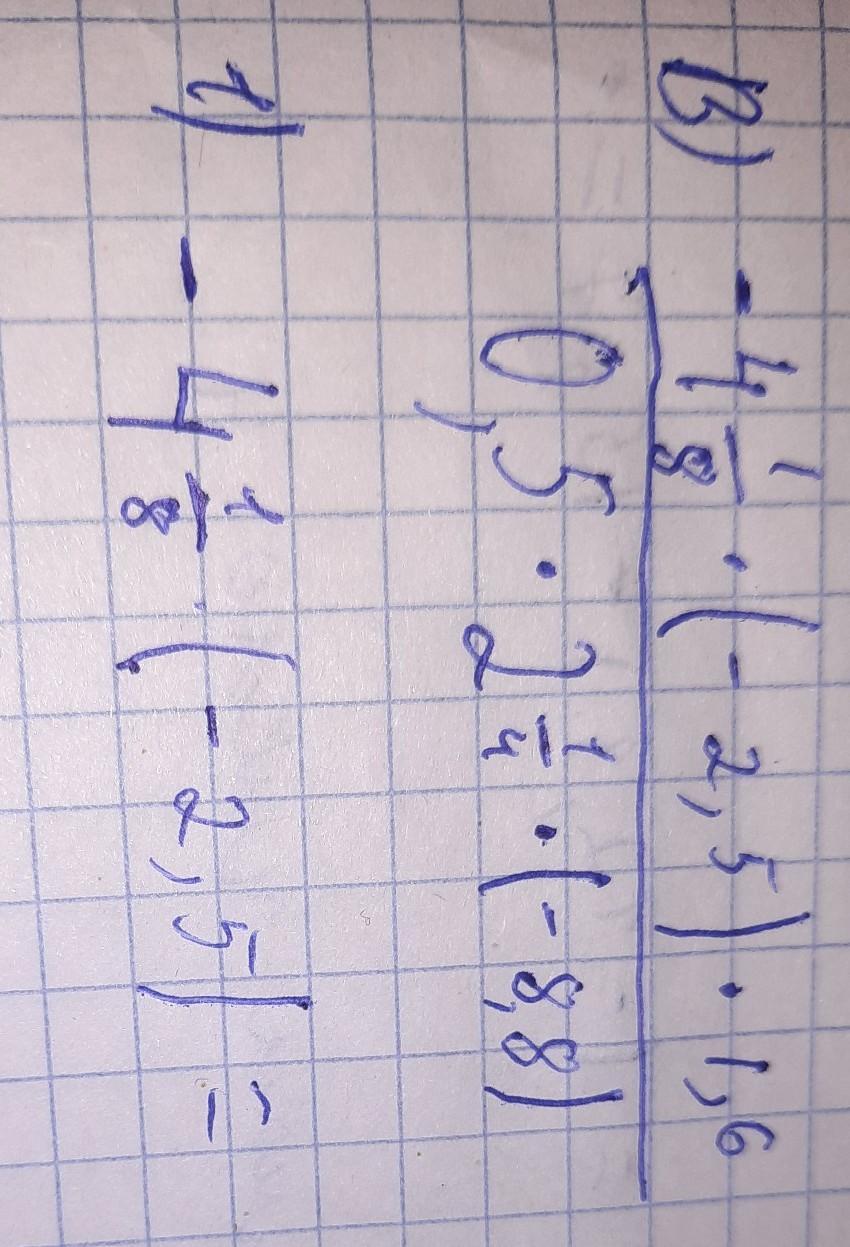 в) -4 1/8 · (-2,5) · 1,6
0,5 · 2 1/4 · (-8,8)
1) -4 1/8 · (-2,5) =